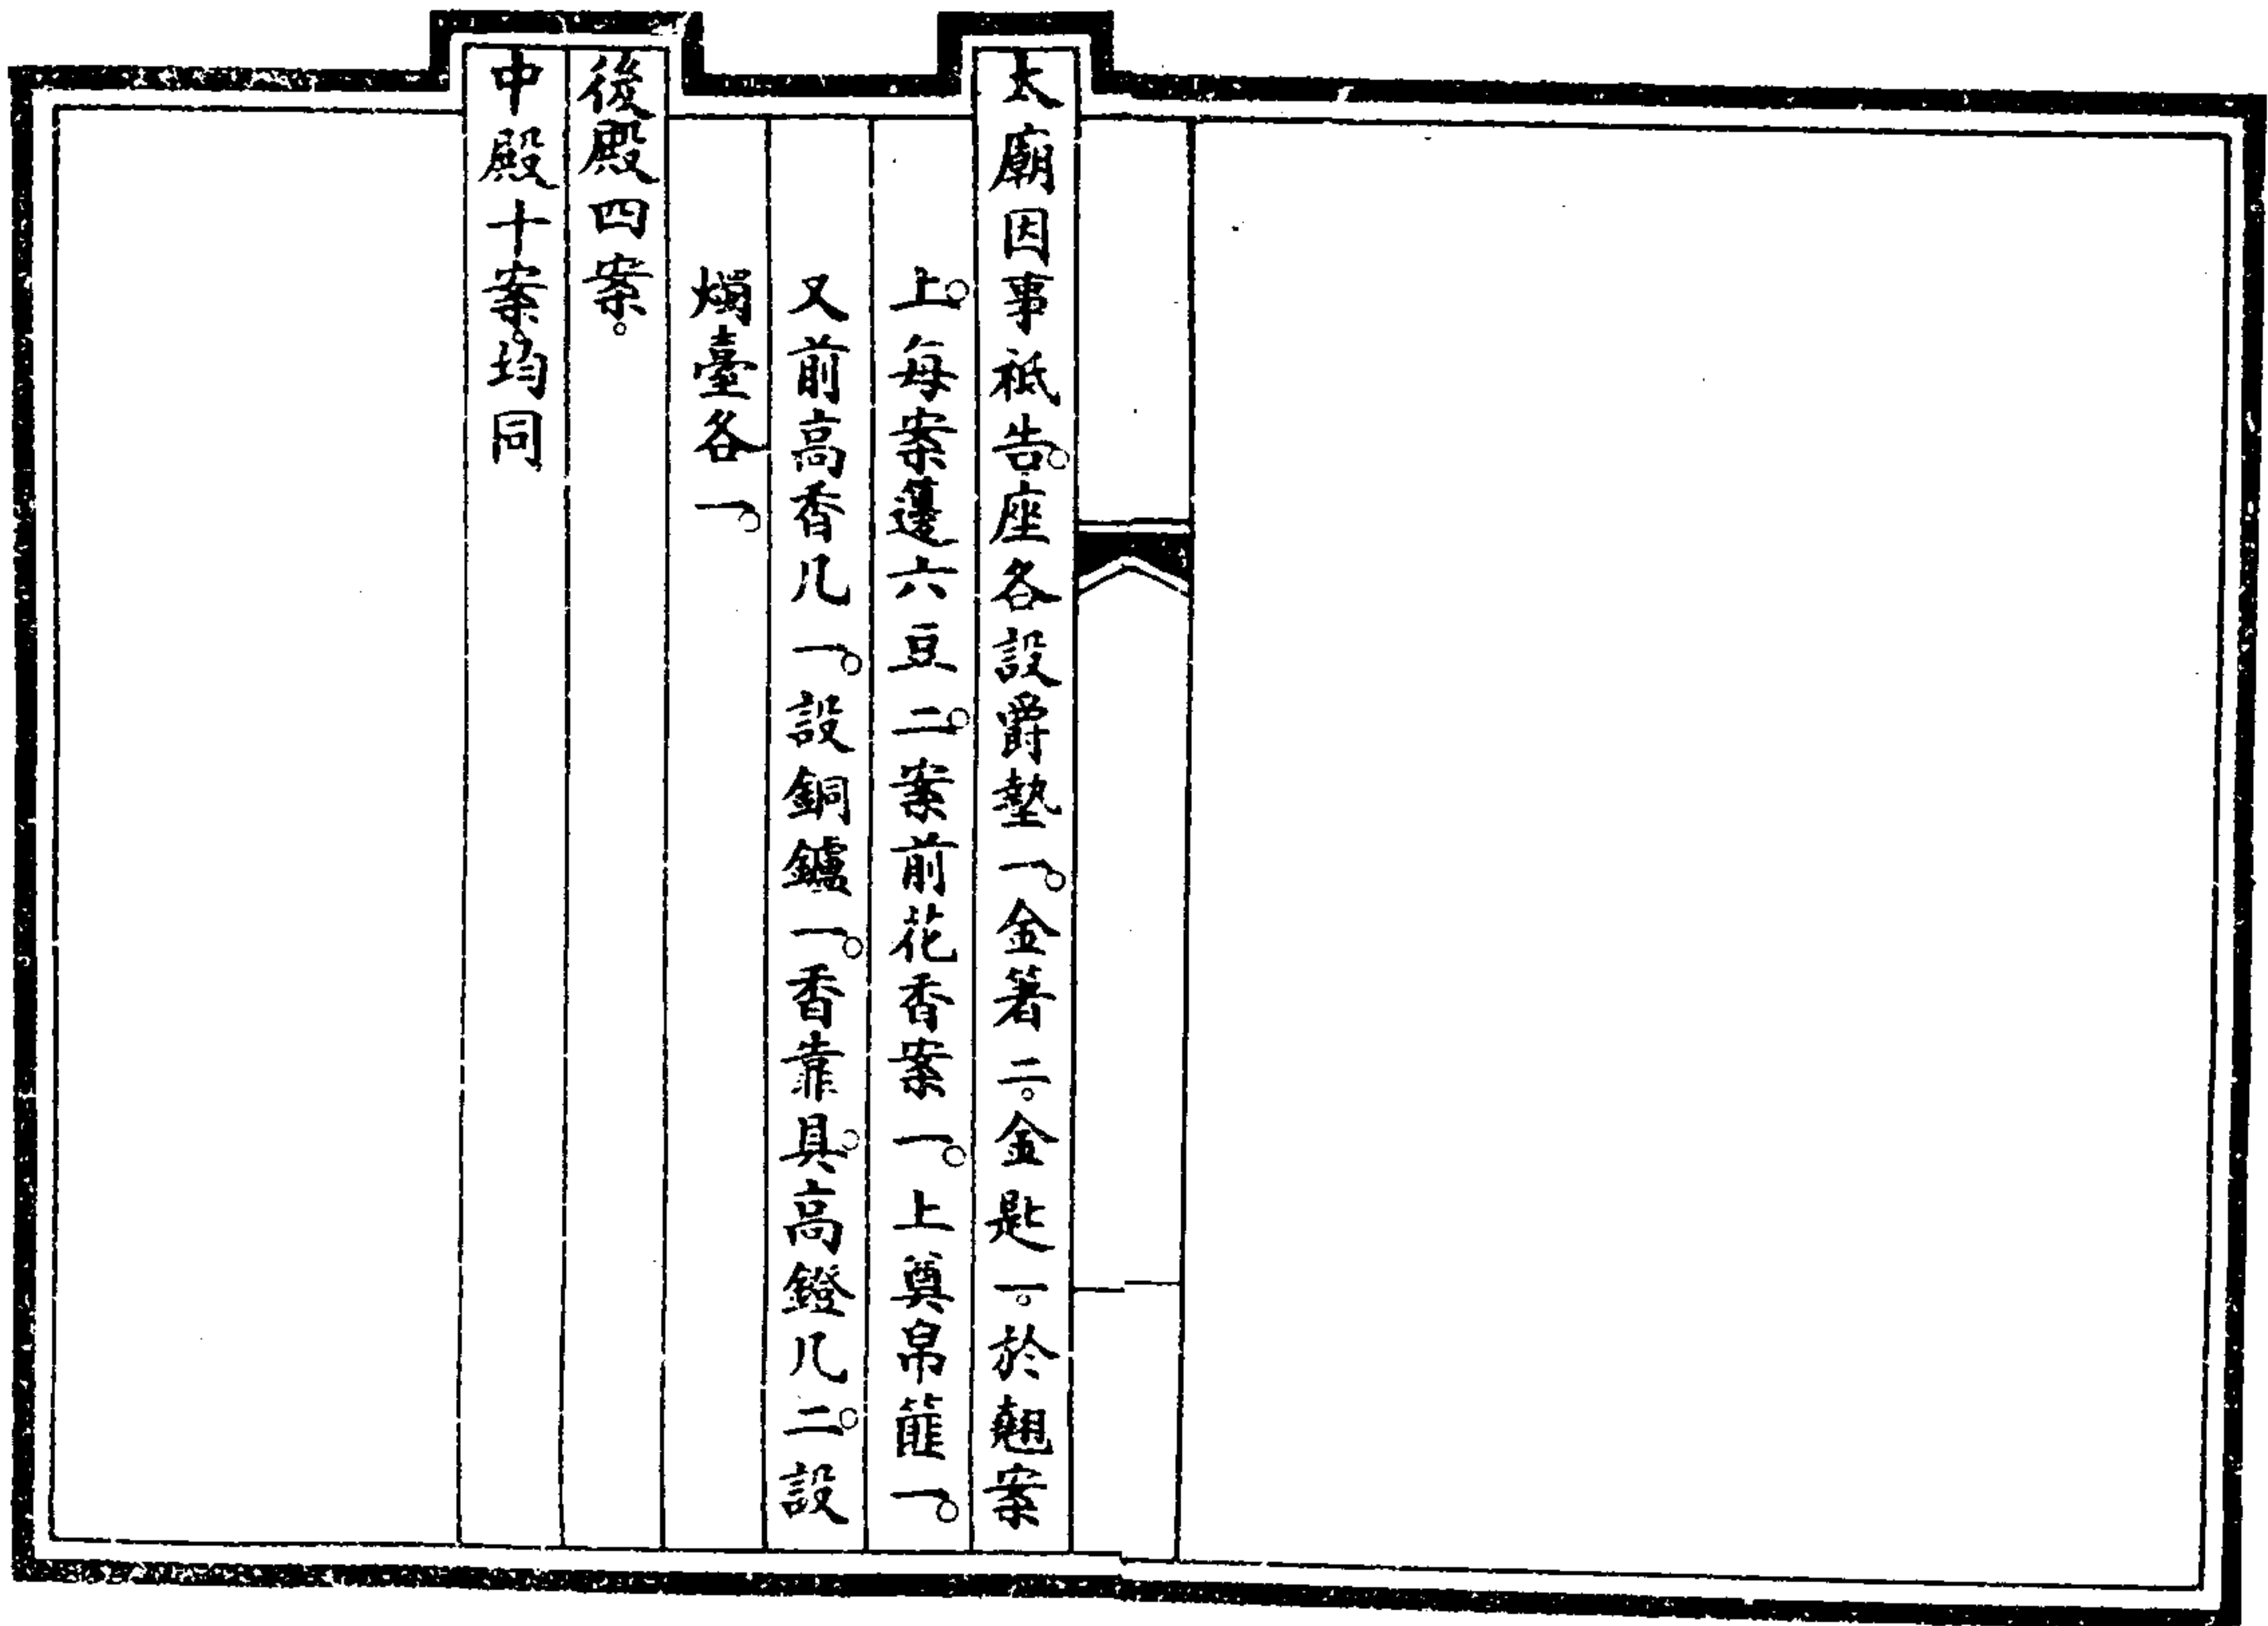 太廟因事祗告。座各設爵墊一。金箸二。金匙一。於翹案
上。每案籩六豆二。案前花香案一。上奠帛篚一。
又前高香几一。設銅鑪一。香靠具。高鐙几二。設
燭臺各一。
後殿四案。
中殿十案。均同